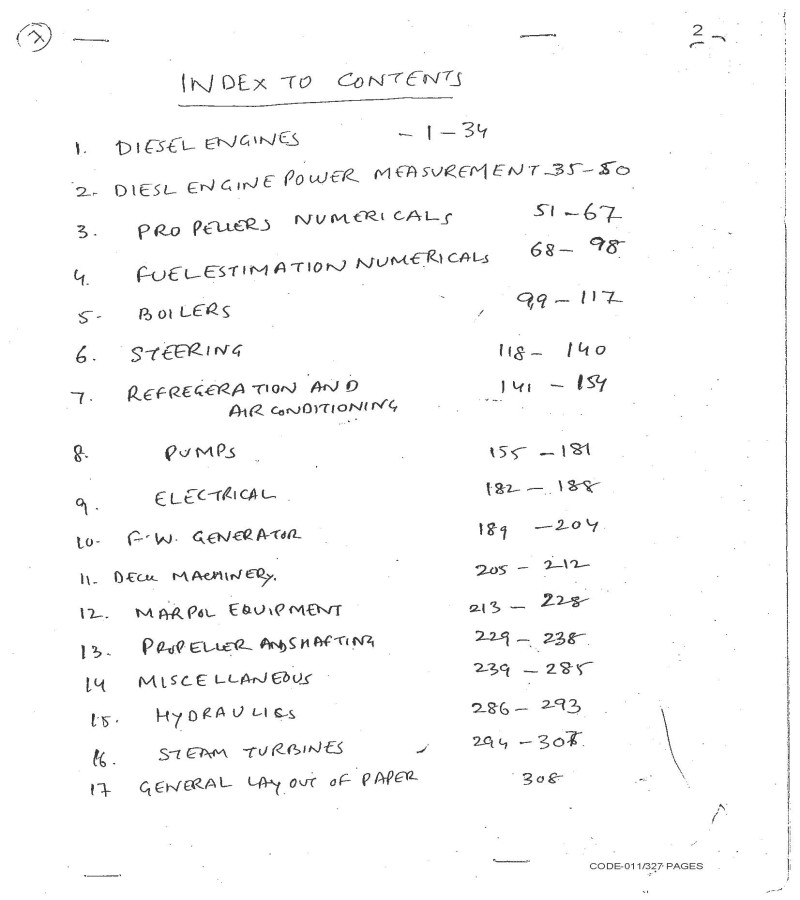 7
2
INDEX TO CONTENTS
1. DIESEL ENGINES - 1 - 34
2. DIESL ENGINE POWER MEASUREMENT 35-50
3. PROPELLERS NUMERICALS 51-67
4. FUEL ESTIMATION NUMERICALS 68- 98
5- BOILERS 99-117
6. STEERING 118- 140
7. REFREGERATION AND 141 - 154
AIR CONDITIONING
8. PUMPS 155 -181
9. ELECTRICAL 182 - 188
10- F.W. GENERATOR 189 -204
11. DECK MACHINERY. 205 - 212
12. MARPOL EQUIPMENT 213 - 228
13. PROPELLER AND SHAFTING 229 - 238
14 MISCELLANEOUS 239 -285
15. HYDRAULICS 286- 293
16. STEAM TURBINES 294-307
17 GENERAL LAY OUT OF PAPER 308
CODE-011/327 PAGES